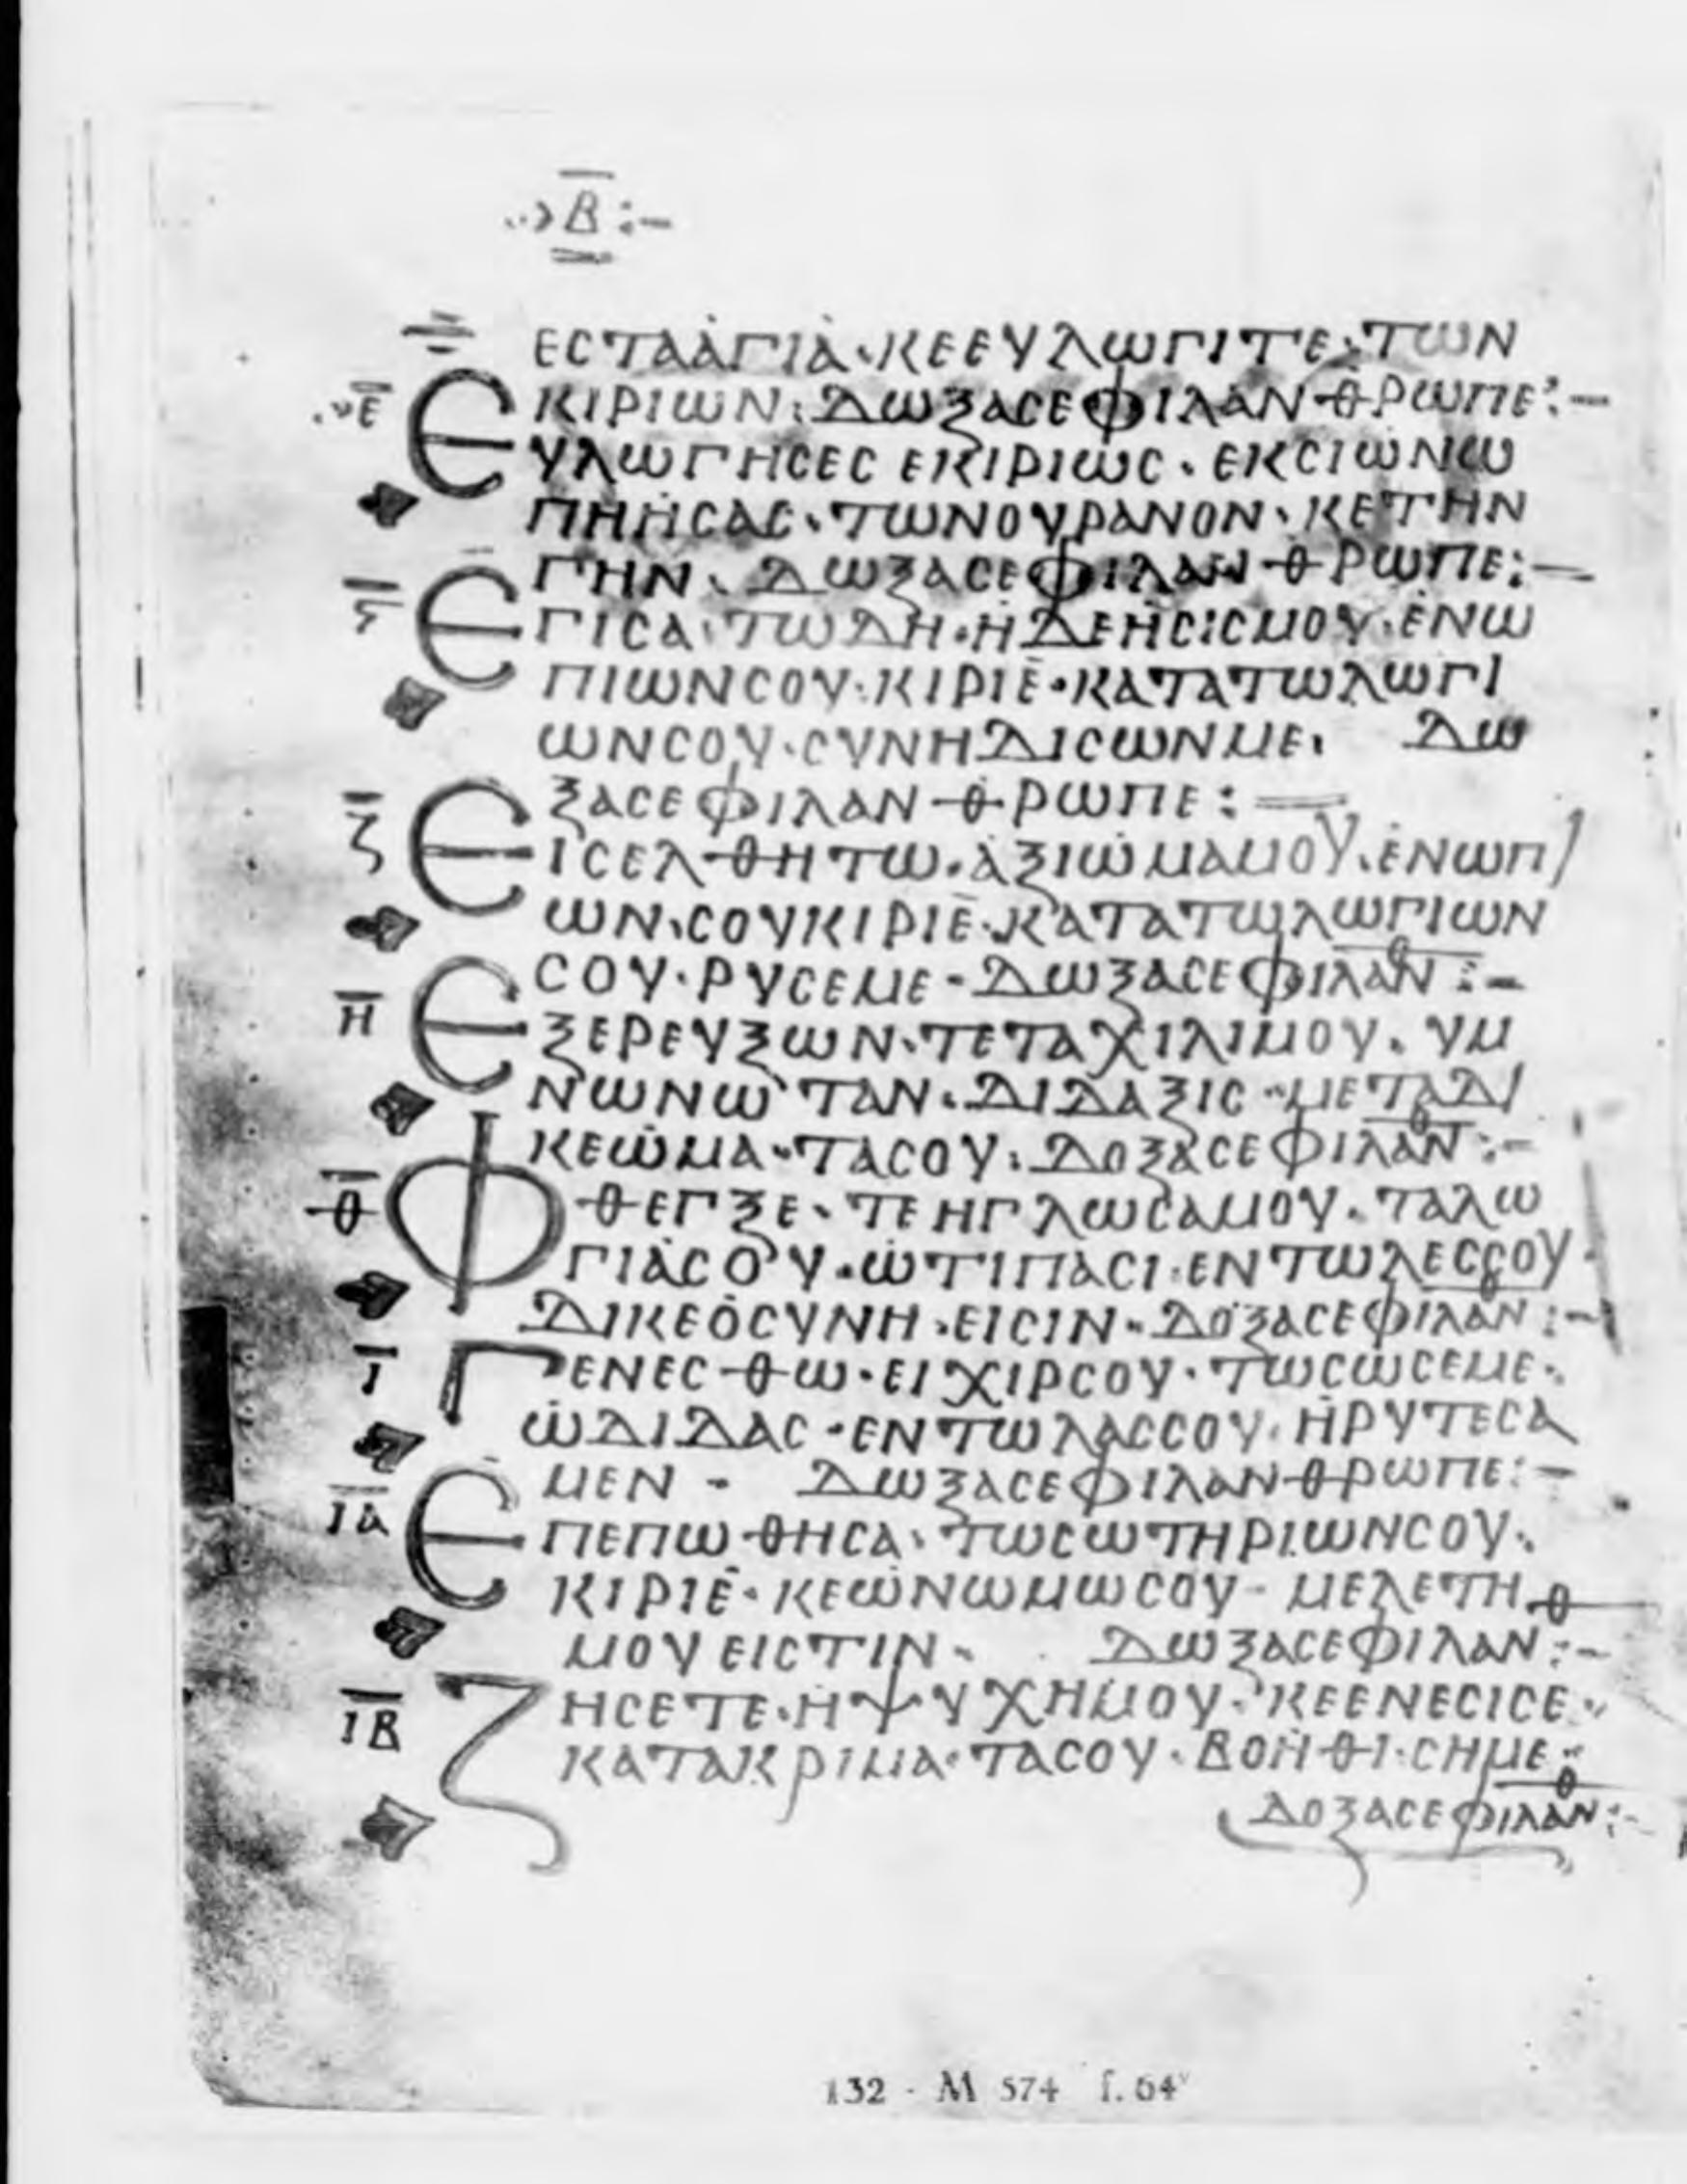 Β̅ :-
ΕСΤΑΑΓΙΑ·ΚΕΕΥΛΩΓΙΤΕ·ΤΩΝ
Ε̅ Ε ΚΙΡΙΩΝ: ΔΩΞΑСΕΦΙΛΑΝΘΡΩΠΕ:-
ΥΛΩΓΗСΕС ΕΚΙΡΙΩС·ΕΚСΙΩΝΩ
ΠΗΗСΑС·ΤΩΝΟΥΡΑΝΟΝ·ΚΕΤΗΝ
ΓΗΝ·ΔΩΞΑСΕΦΙΛΑΝΘΡΩΠΕ:-
Ϛ̅ Ε ΓΙСΑΤΩΔΗ·ΗΔΕΗСΙСΜΟΥ·ΕΝΩ
ΠΙΩΝСΟΥ·ΚΙΡΙΕ·ΚΑΤΑΤΩΛΩΓΙ
ΩΝСΟΥ·СΥΝΗΔΙСΩΝΜΕ· ΔΩ
ΞΑСΕΦΙΛΑΝΘΡΩΠΕ:
Ζ̅ Ε ΙСΕΛΘΗΤΩ·ΑΞΙΩΜΑΜΟΥ·ΕΝΩΠ/
ΩΝ·СΟΥΚΙΡΙΕ·ΚΑΤΑΤΩΛΩΓΙΩΝ
СΟΥ·ΡΥСΕΜΕ-ΔΩΞΑСΕΦΙΛΑΝΘ̅:-
Η̅ Ε ΞΕΡΕΥΞΩΝ·ΤΕΤΑΧΙΛΙΜΟΥ·ΥΜ
ΝΩΝΩΤΑΝ·ΔΙΔΑΞΙС·ΜΕΤΑΔ/
ΚΕΩΜΑ·ΤΑСΟΥ: ΔΟΞΑСΕΦΙΛΑΝΘ̅:-
Θ̅ Φ ΘΕΓΞΕ·ΤΕΗΓΛΩСΑΜΟΥ·ΤΑΛΩ
ΓΙΑСΟΥ·ΩΤΙΠΑСΙ·ΕΝΤΩΛΕССΟΥ
ΔΙΚΕΟСΥΝΗ·ΕΙСΙΝ-ΔΟΞΑСΕΦΙΛΑΝΘ̅:-
Ι̅ Γ ΕΝΕСΘΩ·ΕΙΧΙΡСΟΥ·ΤΩСΩСΕΜΕ·
ΩΔΙΔΑС·ΕΝΤΩΛΑССΟΥ·ΗΡΥΤΕСΑ
ΜΕΝ- ΔΩΞΑСΕΦΙΛΑΝΘΡΩΠΕ:-
ΙΑ̅ Ε ΠΕΠΩΘΗСΑ·ΤΩСΩΤΗΡΙΩΝСΟΥ·
ΚΙΡΙΕ·ΚΕΩΝΩΜΩСΟΥ-ΜΕΛΕΤΗ
ΜΟΥΕΙСΤΙΝ- ΔΩΞΑСΕΦΙΛΑΝΘ̅:-
ΙΒ̅ Ζ ΗСΕΤΕ·ΗΨΥΧΗΜΟΥ·ΚΕΕΝΕСΙСΕ·
ΚΑΤΑΚΡΙΜΑ·ΤΑСΟΥ·ΒΟΗΘΙ·СΗΜΕ:
ΔΟΞΑСΕΦΙΛΑΝΘ̅:-
132 - M 574 f. 64ᵛ